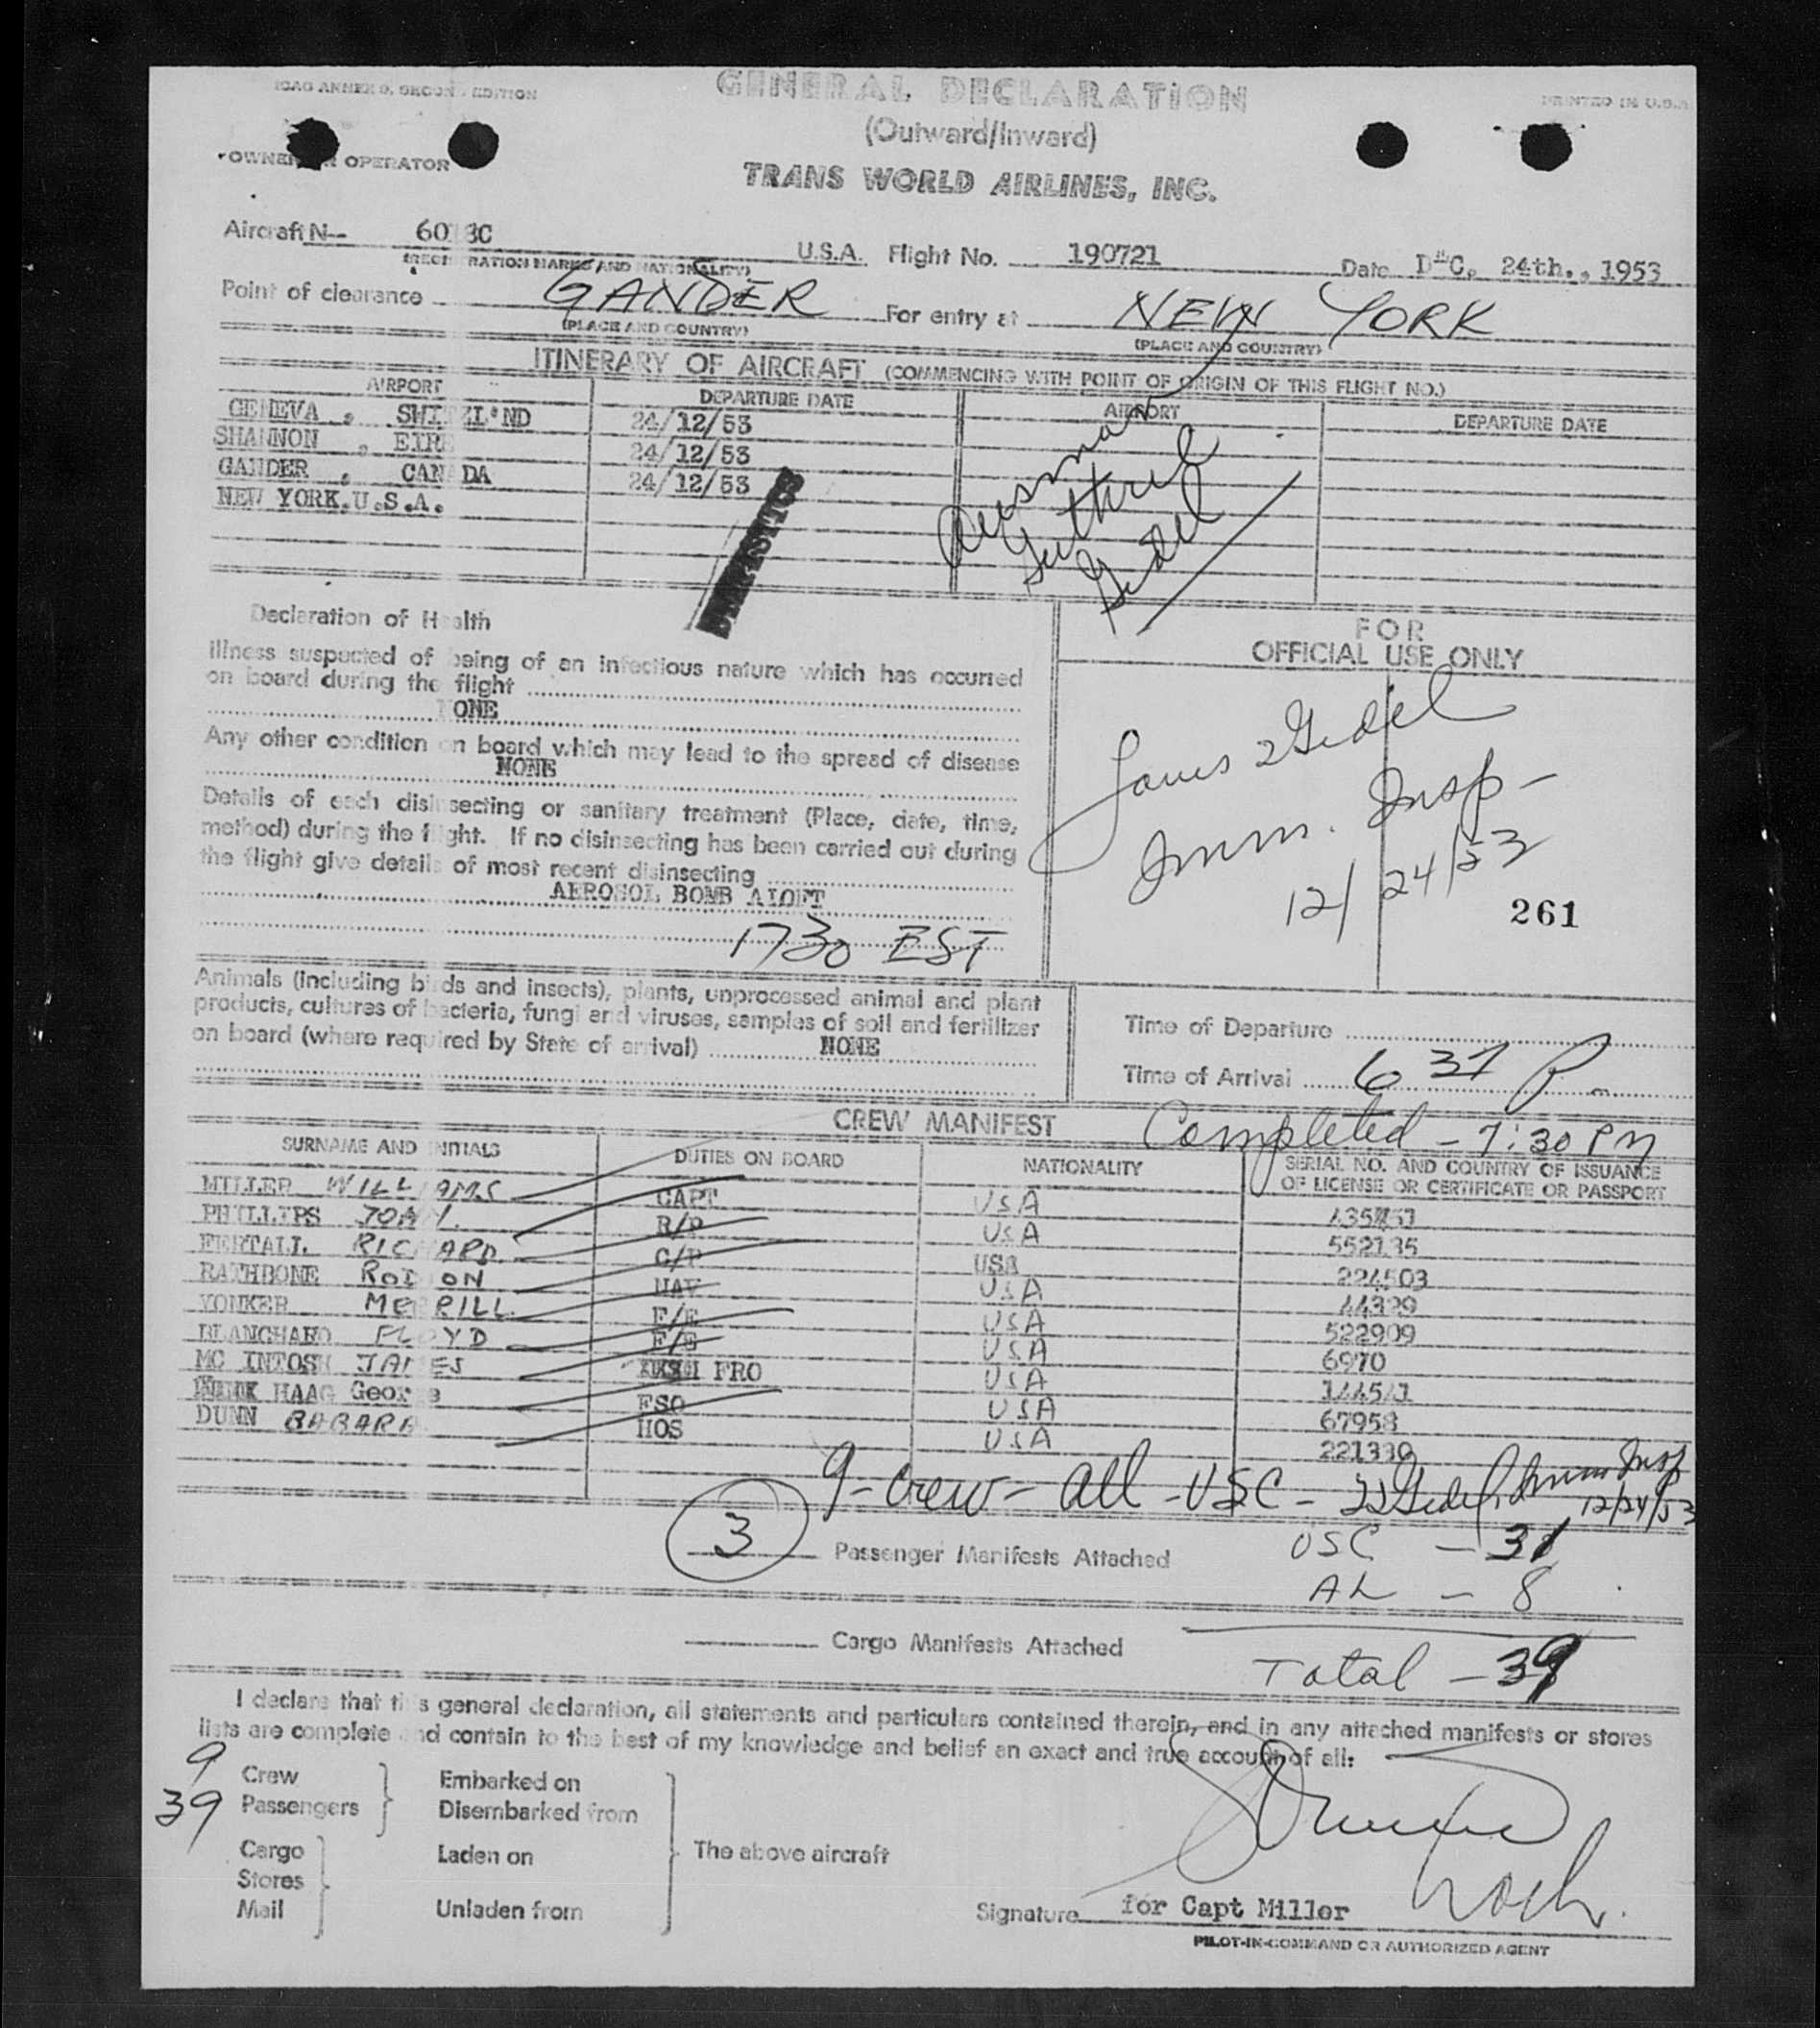 ICAO ANNEX 9, SECOND EDITION
GENERAL DECLARATION
PRINTED IN U.S.A.
(Outward/Inward)
OWNER OR OPERATOR
TRANS WORLD AIRLINES, INC.
Aircraft N-- U.S.A. Flight No. 190721 Date DEC. 24th., 1953
(REGISTRATION MARKS AND NATIONALITY)
Point of clearance GANDER For entry at NEW YORK
(PLACE AND COUNTRY) (PLACE AND COUNTRY)
ITINERARY OF AIRCRAFT (COMMENCING WITH POINT OF ORIGIN OF THIS FLIGHT NO.)
AIRPORT DEPARTURE DATE AIRPORT DEPARTURE DATE
GENEVA , SWITZL'ND 24/12/53
SHANNON , EIRE 24/12/53
GANDER , CANADA 24/12/53
NEW YORK.U.S.A.
STATISTICS
Guthrie
Gedel
Declaration of Health
FOR
OFFICIAL USE ONLY
Illness suspected of being of an infectious nature which has occurred
on board during the flight
NONE
Any other condition on board which may lead to the spread of disease
NONE
Details of each disinsecting or sanitary treatment (Place, date, time,
method) during the flight. If no disinsecting has been carried out during
the flight give details of most recent disinsecting
AEROSOL BOMB ALOFT
1730 EST
Gedel
Imm. Insp-
12/24/53
261
Animals (including birds and insects), plants, unprocessed animal and plant
products, cultures of bacteria, fungi and viruses, samples of soil and fertilizer
on board (where required by State of arrival) NONE
Time of Departure
Time of Arrival 6 37 Pm
CREW MANIFEST
Completed - 7:30 PM
SURNAME AND INITIALS DUTIES ON BOARD NATIONALITY SERIAL NO. AND COUNTRY OF ISSUANCE
OF LICENSE OR CERTIFICATE OR PASSPORT
MILLER WILLIAMS CAPT USA
PHILLIPS JOHN. R/P USA 552135
FERTALL RICHARD. C/P USA 224503
RATHBONE NAV USA 44329
YONKER MERRILL F/E USA 522909
BLANCHARD FLOYD F/E USA 6970
MC INTOSH JAMES FRO USA 144541
HAAG George FSO USA 67958
DUNN BABARA HOS USA 221330
9- Crew - All - USC - Gedel, Imm Insp
12/24/53
3 Passenger Manifests Attached
USC - 31
AL - 8
Cargo Manifests Attached
Total - 39
I declare that this general declaration, all statements and particulars contained therein, and in any attached manifests or stores
lists are complete and contain to the best of my knowledge and belief an exact and true account of all:
9 Crew Embarked on
39 Passengers Disembarked from
Cargo Laden on The above aircraft
Stores
Mail Unladen from
Signature for Capt Miller
PILOT-IN-COMMAND OR AUTHORIZED AGENT